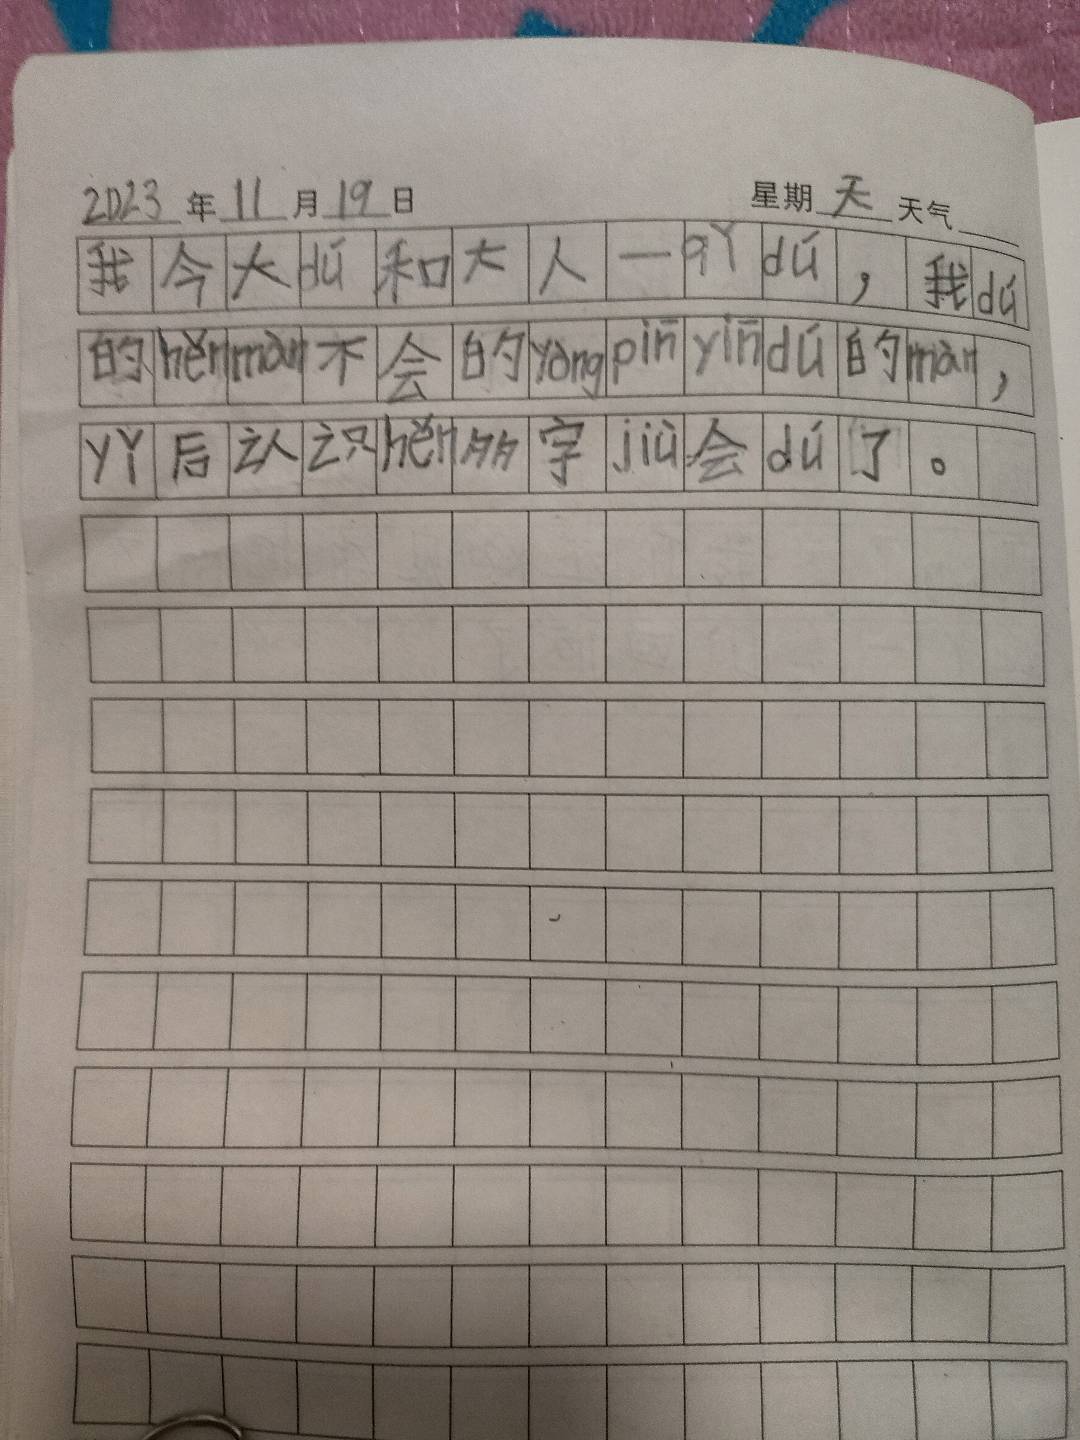 2023年11月19日 星期天 天气
我今大dú和大人一qǐdú，我dú
的hěnmàn不会的yòngpīnyīndú的màn，
yǐ后认识hěn多字jiù会dú了。